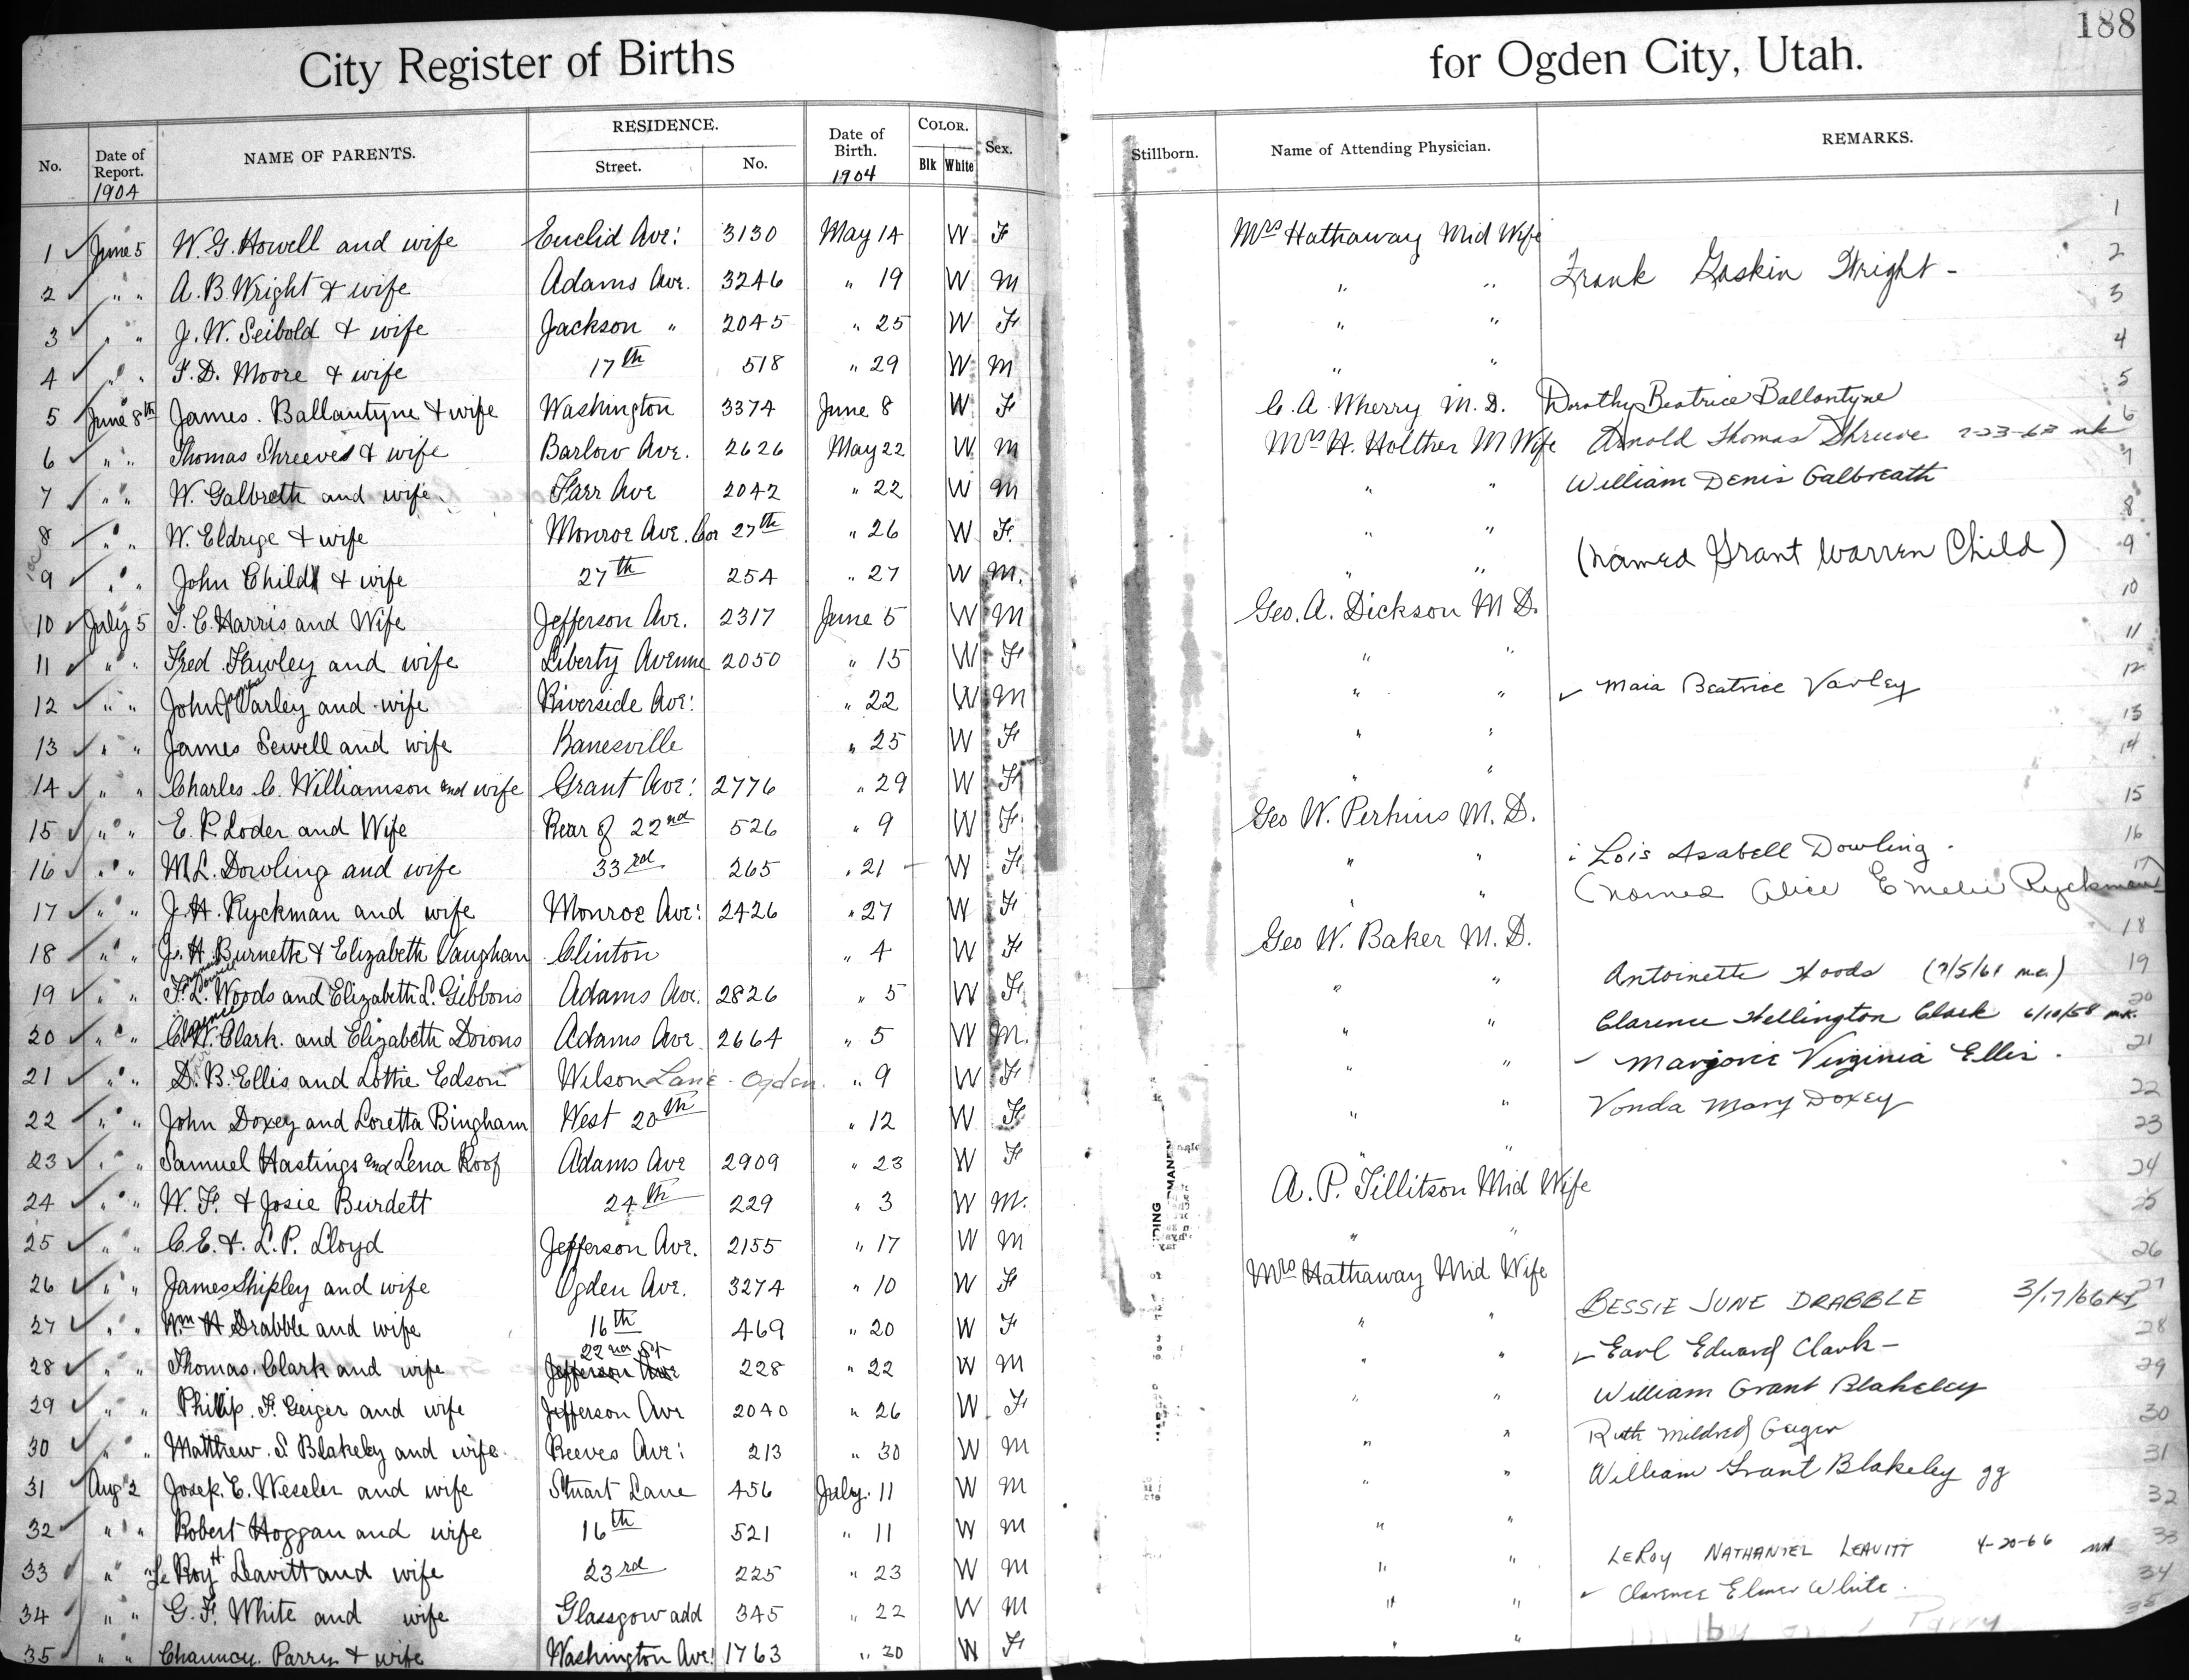 188
City Register of Births for Ogden City, Utah.
No. Date of Report. NAME OF PARENTS. RESIDENCE. Date of Birth. COLOR. Sex. Stillborn. Name of Attending Physician. REMARKS.
1904 Street. No. 1904 Blk White
1 June 5 W. G. Howell and wife Euclid Ave: 3130 May 14 W F Mrs Hathaway Mid Wife 1
2 " " A. B. Wright & wife Adams Ave. 3246 " 19 W M " " Frank Gaskin Wright - 2
3 " " J. W. Seibold & wife Jackson " 2045 " 25 W F " " 3
4 " " F. D. Moore & wife 17th 518 " 29 W M " " 4
5 June 8th James. Ballantyne & wife Washington 3374 June 8 W F C. A. Wherry M. D. Dorothy Beatrice Ballantyne 5
6 " " Thomas Shreeves & wife Barlow Ave. 2626 May 22 W M Mrs H. Holther M Wife Arnold Thomas Shreeve 6
7 " " W. Galbreth and wife. Farr Ave 2042 " 22 W M " " William Denis Galbreath 7
8 " " W. Eldrige & wife Monroe Ave. Cor 27th " 26 W F. " " 8
9 " " John Child & wife 27th 254 " 27 W M. " " (named Grant Warren Child) 9
10 July 5 T. C. Harris and Wife Jefferson Ave. 2317 June 5 W M Geo. A. Dickson M D. 10
11 " " Fred Fawley and wife Liberty Avenue 2050 " 15 W F " " 11
12 " " John James Varley and wife Riverside Ave: " 22 W M " " Maia Beatrice Varley 12
13 " " James Sewell and wife Kanesville " 25 W F " " 13
14 " " Charles C. Williamson and wife Grant Ave: 2776 " 29 W F " " 14
15 " " E. P. Loder and Wife Rear of 22nd 526 " 9 W F Geo W. Perkins M. D. 15
16 " " M. L. Dowling and wife 33rd 265 " 21 W F " " Lois Asabell Dowling. 16
17 " " J. H. Ryckman and wife Monroe Ave: 2426 " 27 W F " " (Named Alice Emelie Ryckman) 17
18 " " J. H. Burnette & Elizabeth Vaughan Clinton " 4 W F Geo W. Baker M. D. 18
19 " " F. L. Woods and Elizabeth L. Gibbons Adams Ave. 2826 " 5 W F " " Antoinette Woods (7/5/61 ma) 19
20 " " Clarence W. Clark. and Elizabeth Dorons Adams Ave. 2664 " 5 W M. " " Clarence Wellington Clark 6/10/58 mk. 20
21 " " D. B. Ellis and Lottie Edson Wilson Lane - Ogden. " 9 W F " " Marjorie Virginia Ellis. 21
22 " " John Doxey and Loretta Bingham West 20th " 12 W F " " Vonda Mary Doxey 22
23 " " Samuel Hastings and Lena Roof Adams Ave 2909 " 23 W F " " 23
24 " " W. F. & Josie Burdett 24th 229 " 3 W M. A. P. Tillitson Mid Wife 24
25 " " C. E. & L. P. Lloyd Jefferson Ave. 2155 " 17 W M " " 25
26 " " James Shipley and wife Ogden Ave. 3274 " 10 W F Mrs Hathaway Mid Wife 26
27 " " Wm H Drabble and wife 16th 469 " 20 W F " " BESSIE JUNE DRABBLE 3/17/66 27
28 " " Thomas. Clark and wife 22nd St Jefferson Ave 228 " 22 W M " " Earl Edward Clark - 28
29 " " Phillip. F. Geiger and wife Jefferson Ave 2040 " 26 W F " " William Grant Blakeley 29
30 " " Matthew. S. Blakeley and wife. Reeves Ave: 213 " 30 W M " " Ruth Mildred Geiger 30
31 Aug 2 Josep. E. Wesseler and wife Stuart Lane 456 July. 11 W M " " William Grant Blakeley gg 31
32 " " Robert Hoggan and wife 16th 521 " 11 W M " " 32
33 " " Le Roy H Leavitt and wife 23rd 225 " 23 W M " " LEROY NATHANIEL LEAVITT 4-20-66 33
34 " " G. F. White and wife Glassgow add 345 " 22 W M " " Clarence Elmer White. 34
35 " " Chauncy. Parry & wife Washington Ave: 1763 " 30 W F " " Parry 35